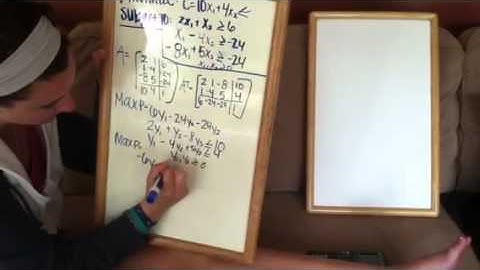 C=10x₁+4x₂
2x₁+x₂≥6
x₁-4x₂≥-24
-8x₁+5x₂≥-24
A=[2 1 6
1 -4 -24
-8 5 -24
10 4 1]
Aᵀ=[2 1 -8 10
1 -4 5 4
6 -24 -24 1]
Max P=6y₁-24y₂-24y₃
2y₁+y₂-8y₃≤10
y₁-4y₂+5y₃≤4
Max P=
-6y₁